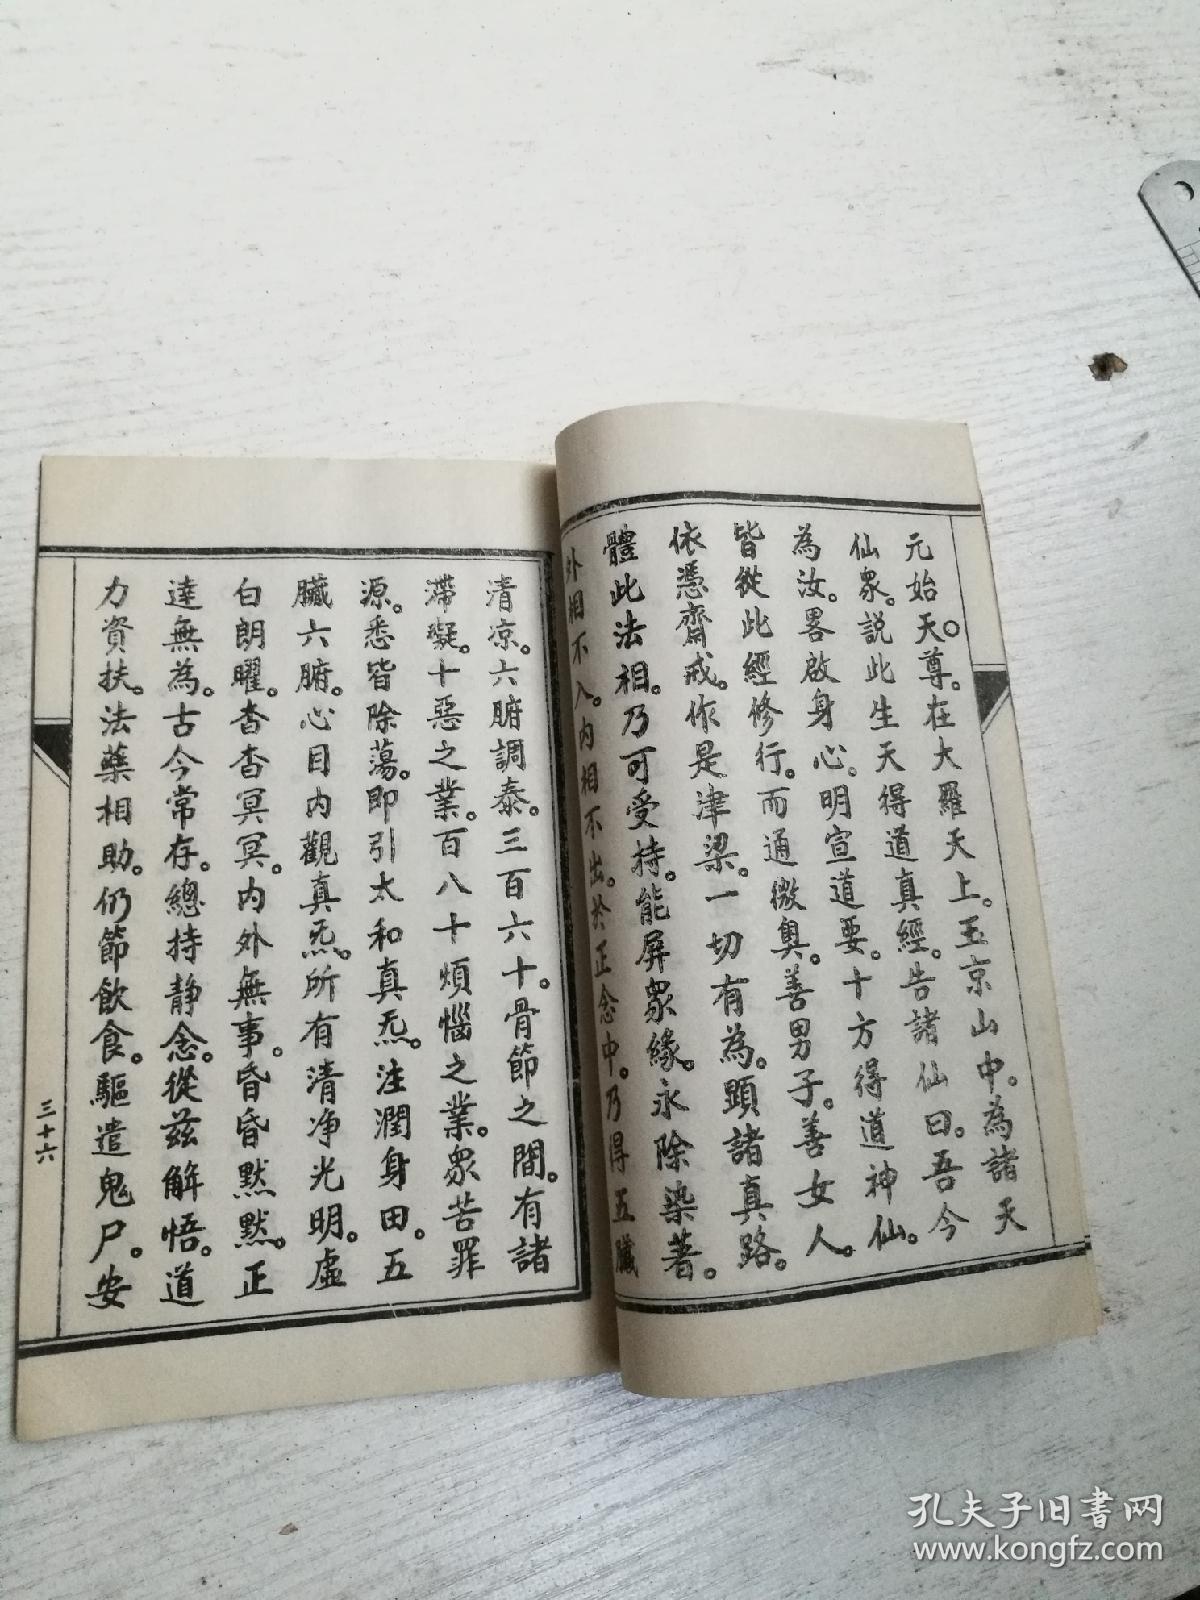 元始天尊。在大羅天上。玉京山中。為諸天
仙衆。説此生天得道真經。告諸仙曰。吾今
為汝。畧啟身心。明宣道要。十方得道神仙。
皆從此經修行。而通微奥。善男子。善女人。
依憑齋戒。作是津梁。一切有為。顕諸真路。
體此法相。乃可受持。能屏衆緣。永除染著。
外相不入。内相不出。於正念中。乃得五臟
清凉。六腑調泰。三百六十。骨節之間。有諸
滯礙。十惡之業。百八十煩惱之業。衆苦罪
源。悉皆除蕩。即引太和真炁。注潤身田。五
臟六腑。心目内觀真炁。所有清净光明。虚
白朗曜。杳杳冥冥。内外無事。昏昏默默。正
達無為。古今常存。總持静念。從兹解悟。道
力資扶。法藥相助。仍節飲食。驅遣鬼尸。安
三十六
孔夫子旧书网
www.kongfz.com